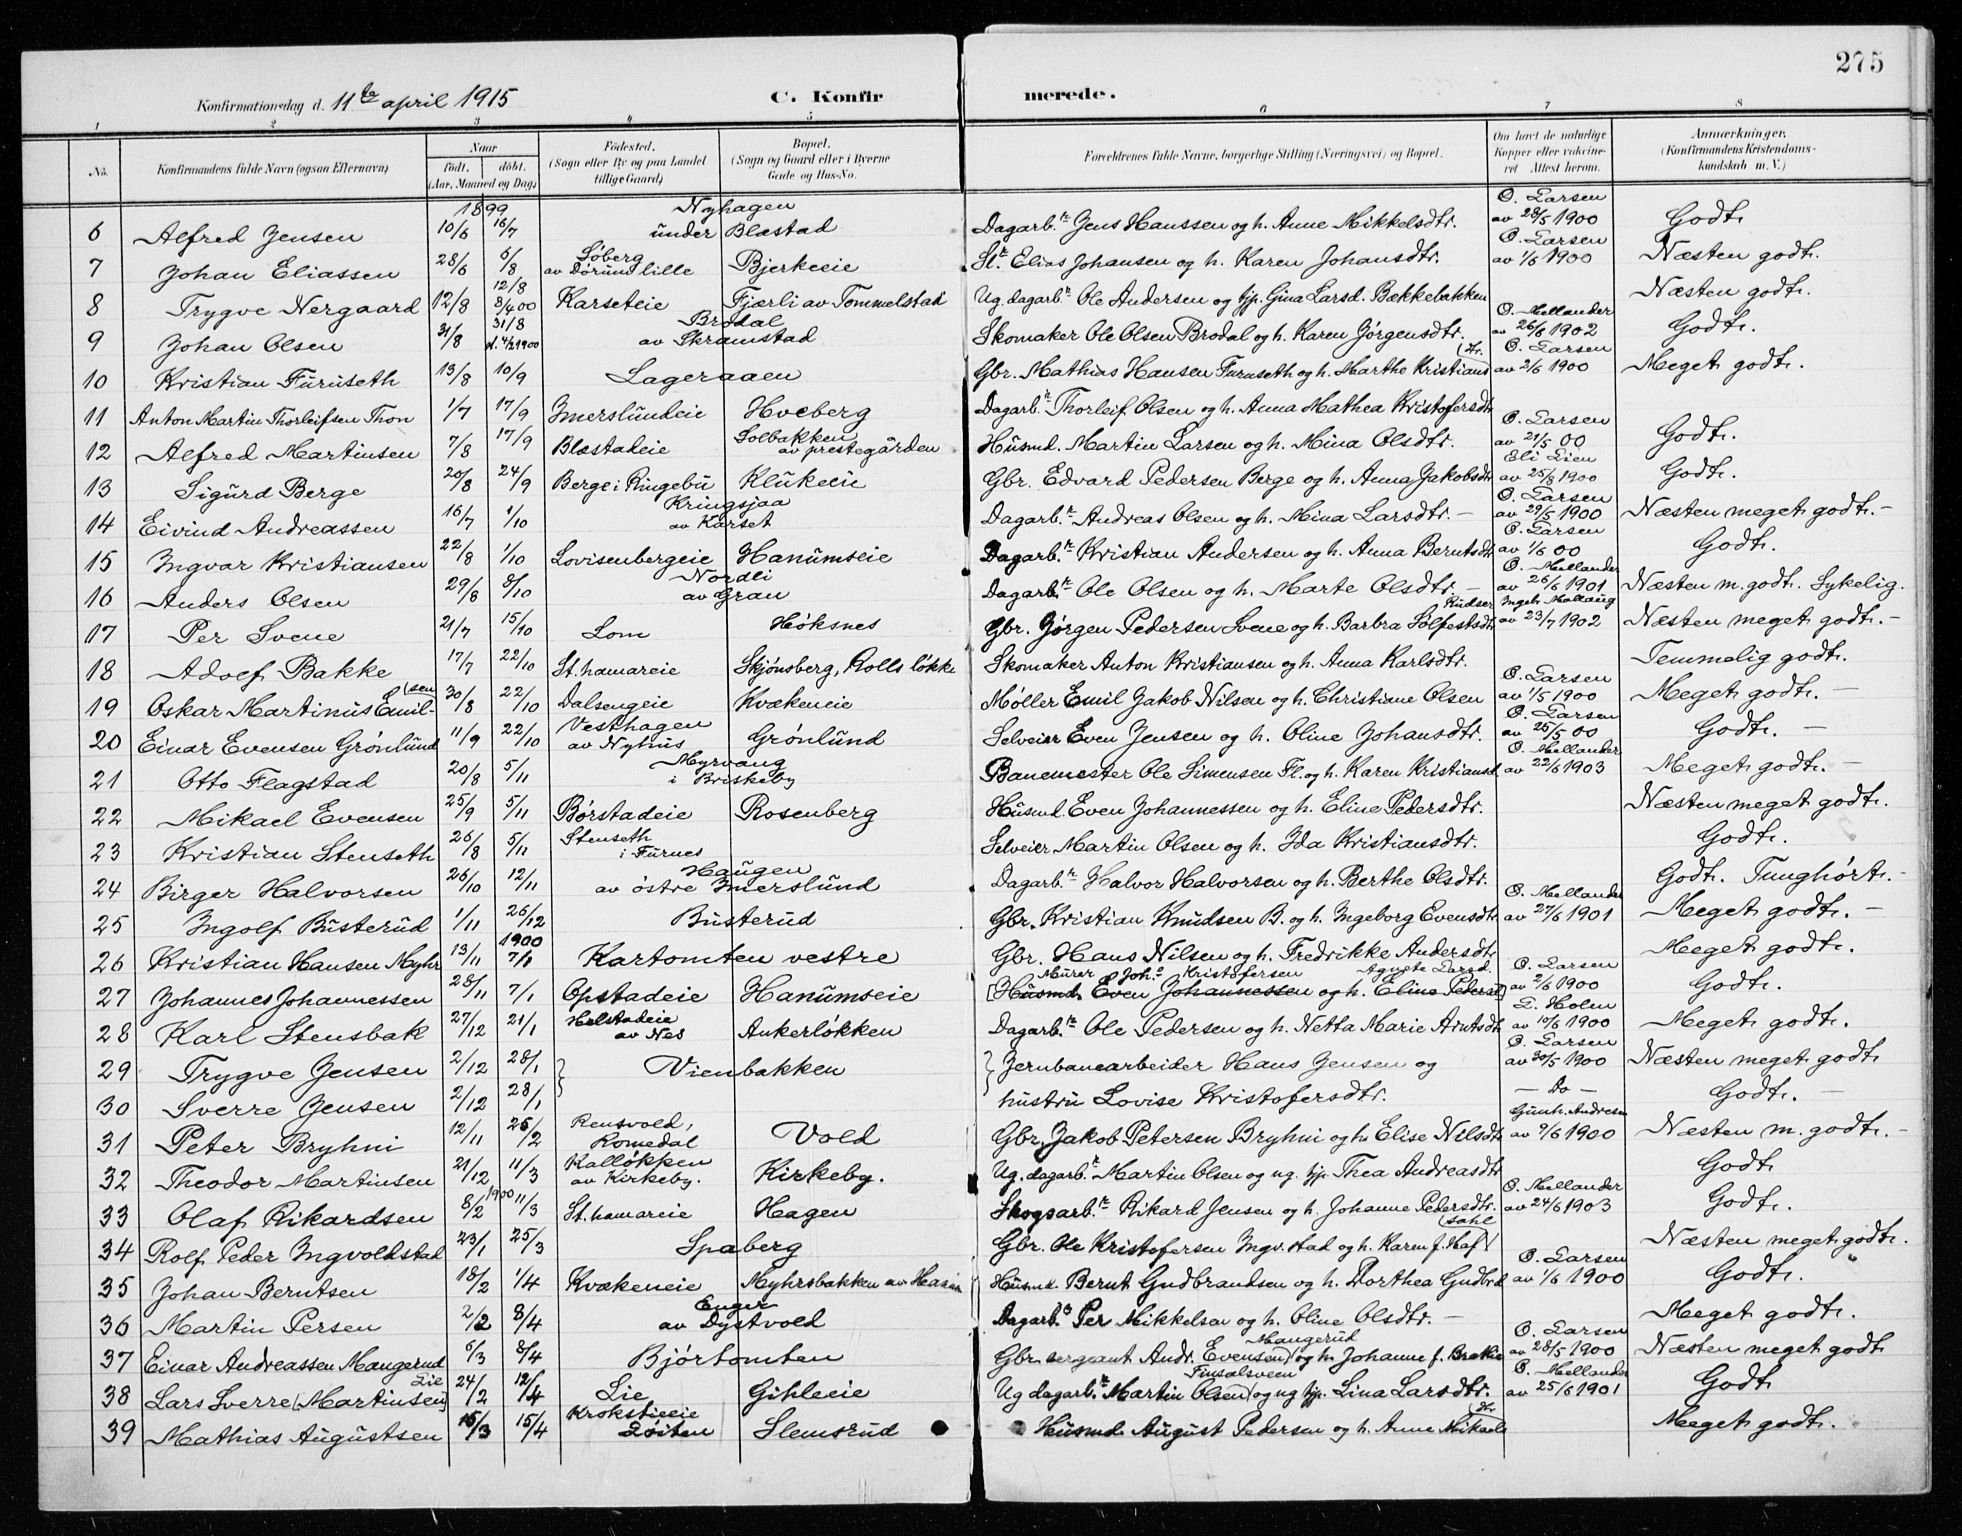 275
Konfirmationsdag d. 11te april 1915 C. Konfirmerede.
1 2 3 4 5 6 7 8
No. Konfirmandens fulde Navn (ogsaa Efternavn) Naar født. døbt. (Aar, Maaned og Dag) Fødested. (Sogn eller By og paa Landet tillige Gaard) Bopæl. (Sogn og Gaard eller i Byerne Gade og Hus-No. Forældrenes fulde Navne, borgerlige Stilling (Næringsvei) og Bopæl. Om havt de naturlige Kopper eller vakcineret. Attest herom. Anmærkninger. (Konfirmandens Kristendomskundskab m. V.)
1899
6 Alfred Jensen 10/6 16/7 Nyhagen under Blæstad Dagarb.r Jens Hanssen og h. Anne Mikkelsdtr. O. Larsen av 28/5 1900 Godt.
7 Johan Eliassen 28/6 6/8 Søberg av Dørum lille Bjerkeeie St.r Elias Johansen og h. Karen Johansdtr. O. Larsen av 1/6 1900 Næsten godt.
8 Trygve Nergaard 12/8 12/8 8/4 00 Karseteie Fjærli av Tommelstad Ug. dagarb.r Ole Andersen og tjp. Gina Larsd. Bækkebakken Næsten godt.
9 Johan Olsen 31/8 31/8 d. 4/2 1900 Brodal av Skramstad Skomaker Ole Olsen Brodal og h. Karen Jørgensdtr. O. Mellander av 26/6 1902 Godt.
10 Kristian Furuseth 13/8 10/9 Lageraaen Gbr. Mathias Hansen Furuseth og h. Marthe Kristiansdtr. O. Larsen av 2/6 1900 Meget godt.
11 Anton Martin Thorleifsen Thon 1/7 17/9 Imerslundeie Hveberg Dagarb.r Thorleif Olsen og h. Anna Mathea Kristofersdtr
12 Alfred Martinsen 7/8 17/9 Blæstadeie Solbakken av prestegården Husmd. Martin Larsen og h. Mina Olsdtr. O. Larsen av 21/5 00 Godt.
13 Sigurd Berge 20/8 24/9 Berge i Ringebu Klukeeie Gbr. Edvard Pedersen Berge og h. Anna Jakobsdtr Eli Lien av 25/8 1900 Godt.
14 Eivind Andreassen 16/7 1/10 Kringsjaa av Karset Dagarb.r Andreas Olsen og h. Mina Larsdtr. – O. Larsen av 29/5 1900 Næsten meget godt. –
15 Ingvar Kristiansen 22/8 1/10 Lovisenbergeie Hanumseie Dagarb.r Kristian Andersen og h. Anna Berntsdtr O. Larsen av 1/6 00 Godt.
16 Anders Olsen 29/8 8/10 Nordli av Grau Dagarb. Ole Olsen og h. Marte Olsdtr. – O. Mellander av 26/6 1901 Næsten m. godt. Sykelig.
17 Per Svene 21/7 15/10 Lom Høksnes Gbr. Jørgen Pedersen Svene og h. Barbra Solfestsdtr av 23/7 1902 Næsten meget godt. –
18 Adolf Bakke 17/7 22/10 St. hamareie Skjønsberg, Rolls løkke Skomaker Anton Kristiansen og h. Anna Karlsdtr. Temmelig godt.
19 Oskar Martinus Emilsen 30/8 22/10 Dalsengeie Kvækeneie Møller Emil Jakob Nilsen og h. Christiane Olsen O. Larsen av 1/5 1900 Meget godt. –
20 Einar Evensen Grønlund 11/9 22/10 Vesthagen av Nyhus Grønlund Selveier Even Jensen og h. Oline Johansdtr. O. Larsen av 25/5 00 Godt. –
21 Otto Flagstad 20/8 5/11 Myrvang i Briskeby Banemester Ole Simensen Fl. og h. Karen Kristiansd. O. Mellander av 22/6 1903 Meget godt. –
22 Mikael Evensen 25/9 5/11 Børstadeie Rosenberg Husmd. Even Johannessen og h. Eline Pedersdtr. Næsten meget godt.
23 Kristian Stenseth 26/8 5/11 Stenseth i Furnes Selveier Martin Olsen og h. Ida Kristiansdtr. Godt.
24 Birger Halvorsen 26/10 12/11 Haugen av østre Imerslund Dagarb.r Halvor Halvorsen og h. Berthe Olsdtr. Godt. Tunghørt. –
25 Ingolf Busterud 1/11 26/12 Busterud Gbr. Kristian Knudsen B. og h. Ingeborg Evensdtr O. Mellander av 27/6 1901 Meget godt. –
26 Kristian Hansen Myhr 13/11 1900 7/1 Kartomten vestre Gbr. Hans Nilsen og h. Fredrikke Andersdtr Meget godt.
27 Johannes Johannessen 28/11 7/1 Opstadeie Hanumseie Murer Joh.s Kristofersen Agnete Larsd. [Husmd. Even Johannessen og h. Eline Pedersd] O. Larsen av 2/6 1900 Godt.
28 Karl Stensbak 27/12 21/1 Helstadeie av Nes Ankerløkken Dagarb.r Ole Pedersen og h. Netta Marie Arntsdtr L. Holen av 10/6 1900 Meget godt.
29 Trygve Jensen 2/12 28/1 Vienbakken Jernbanearbeider Hans Jensen og O. Larsen av 30/5 1900 Næsten meget godt
30 Sverre Jensen 2/12 28/1 hustru Lovise Kristofersdtr. – Do – Godt. –
31 Peter Bryhni 12/11 25/2 Rensvold, Romedal Vold Gbr. Jakob Petersen Bryhni og h. Elise Nilsdtr Gunh. Andresen av 9/6 1900 Næsten m. godt. –
32 Theodor Martinsen 21/12 11/3 Kalløkken av Kirkeby. Kirkeby. Ug. dagarb.r Martin Olsen og ug. tjp. Thea Andreasdtr Godt
33 Olaf Rikardsen 8/2 1900 11/3 St. hamareie Hagen Skogsarb.r Rikard Jensen og h. Johanne Pedersdtr. O. Mellander av 24/6 1903 Godt.
34 Rolf Peder Ingvoldstad 23/1 25/3 Spaberg Gbr. Ole Kristofersen Ingv.stad og h. Karen f. Næsten meget godt.
35 Johan Berntsen 18/2 1/4 Kvækeneie Myhrsbakken av Husmd. Bernt Gudbrandsen og h. Dorthea Gudbrd O. Larsen av 1/6 1900 Godt.
36 Martin Persen 2/2 8/4 Enger av Dystvold Dagarb. Per Mikkelsen og h. Oline Olsdtr. – Meget godt.
37 Einar Andreassen Mangerud 6/3 8/4 Bjørtomten Gbr. sergeant Andr. Evensen Mangerud og h. Johanne f. O. Larsen av 28/5 1900 Næsten meget godt
38 Lars Sverre (Martinsen) Lie 24/2 12/4 Lie Gihleeie Ug dagarb.r Martin Olsen Finsalsveen og ug tjp. Lina Larsdtr. O. Mellander av 25/6 1901 Godt
39 Mathias Augustsen 15/3 15/4 Løiten Slemsrud Husmd. August Pedersen og h. Anne Mikaelsdtr. Meget godt.